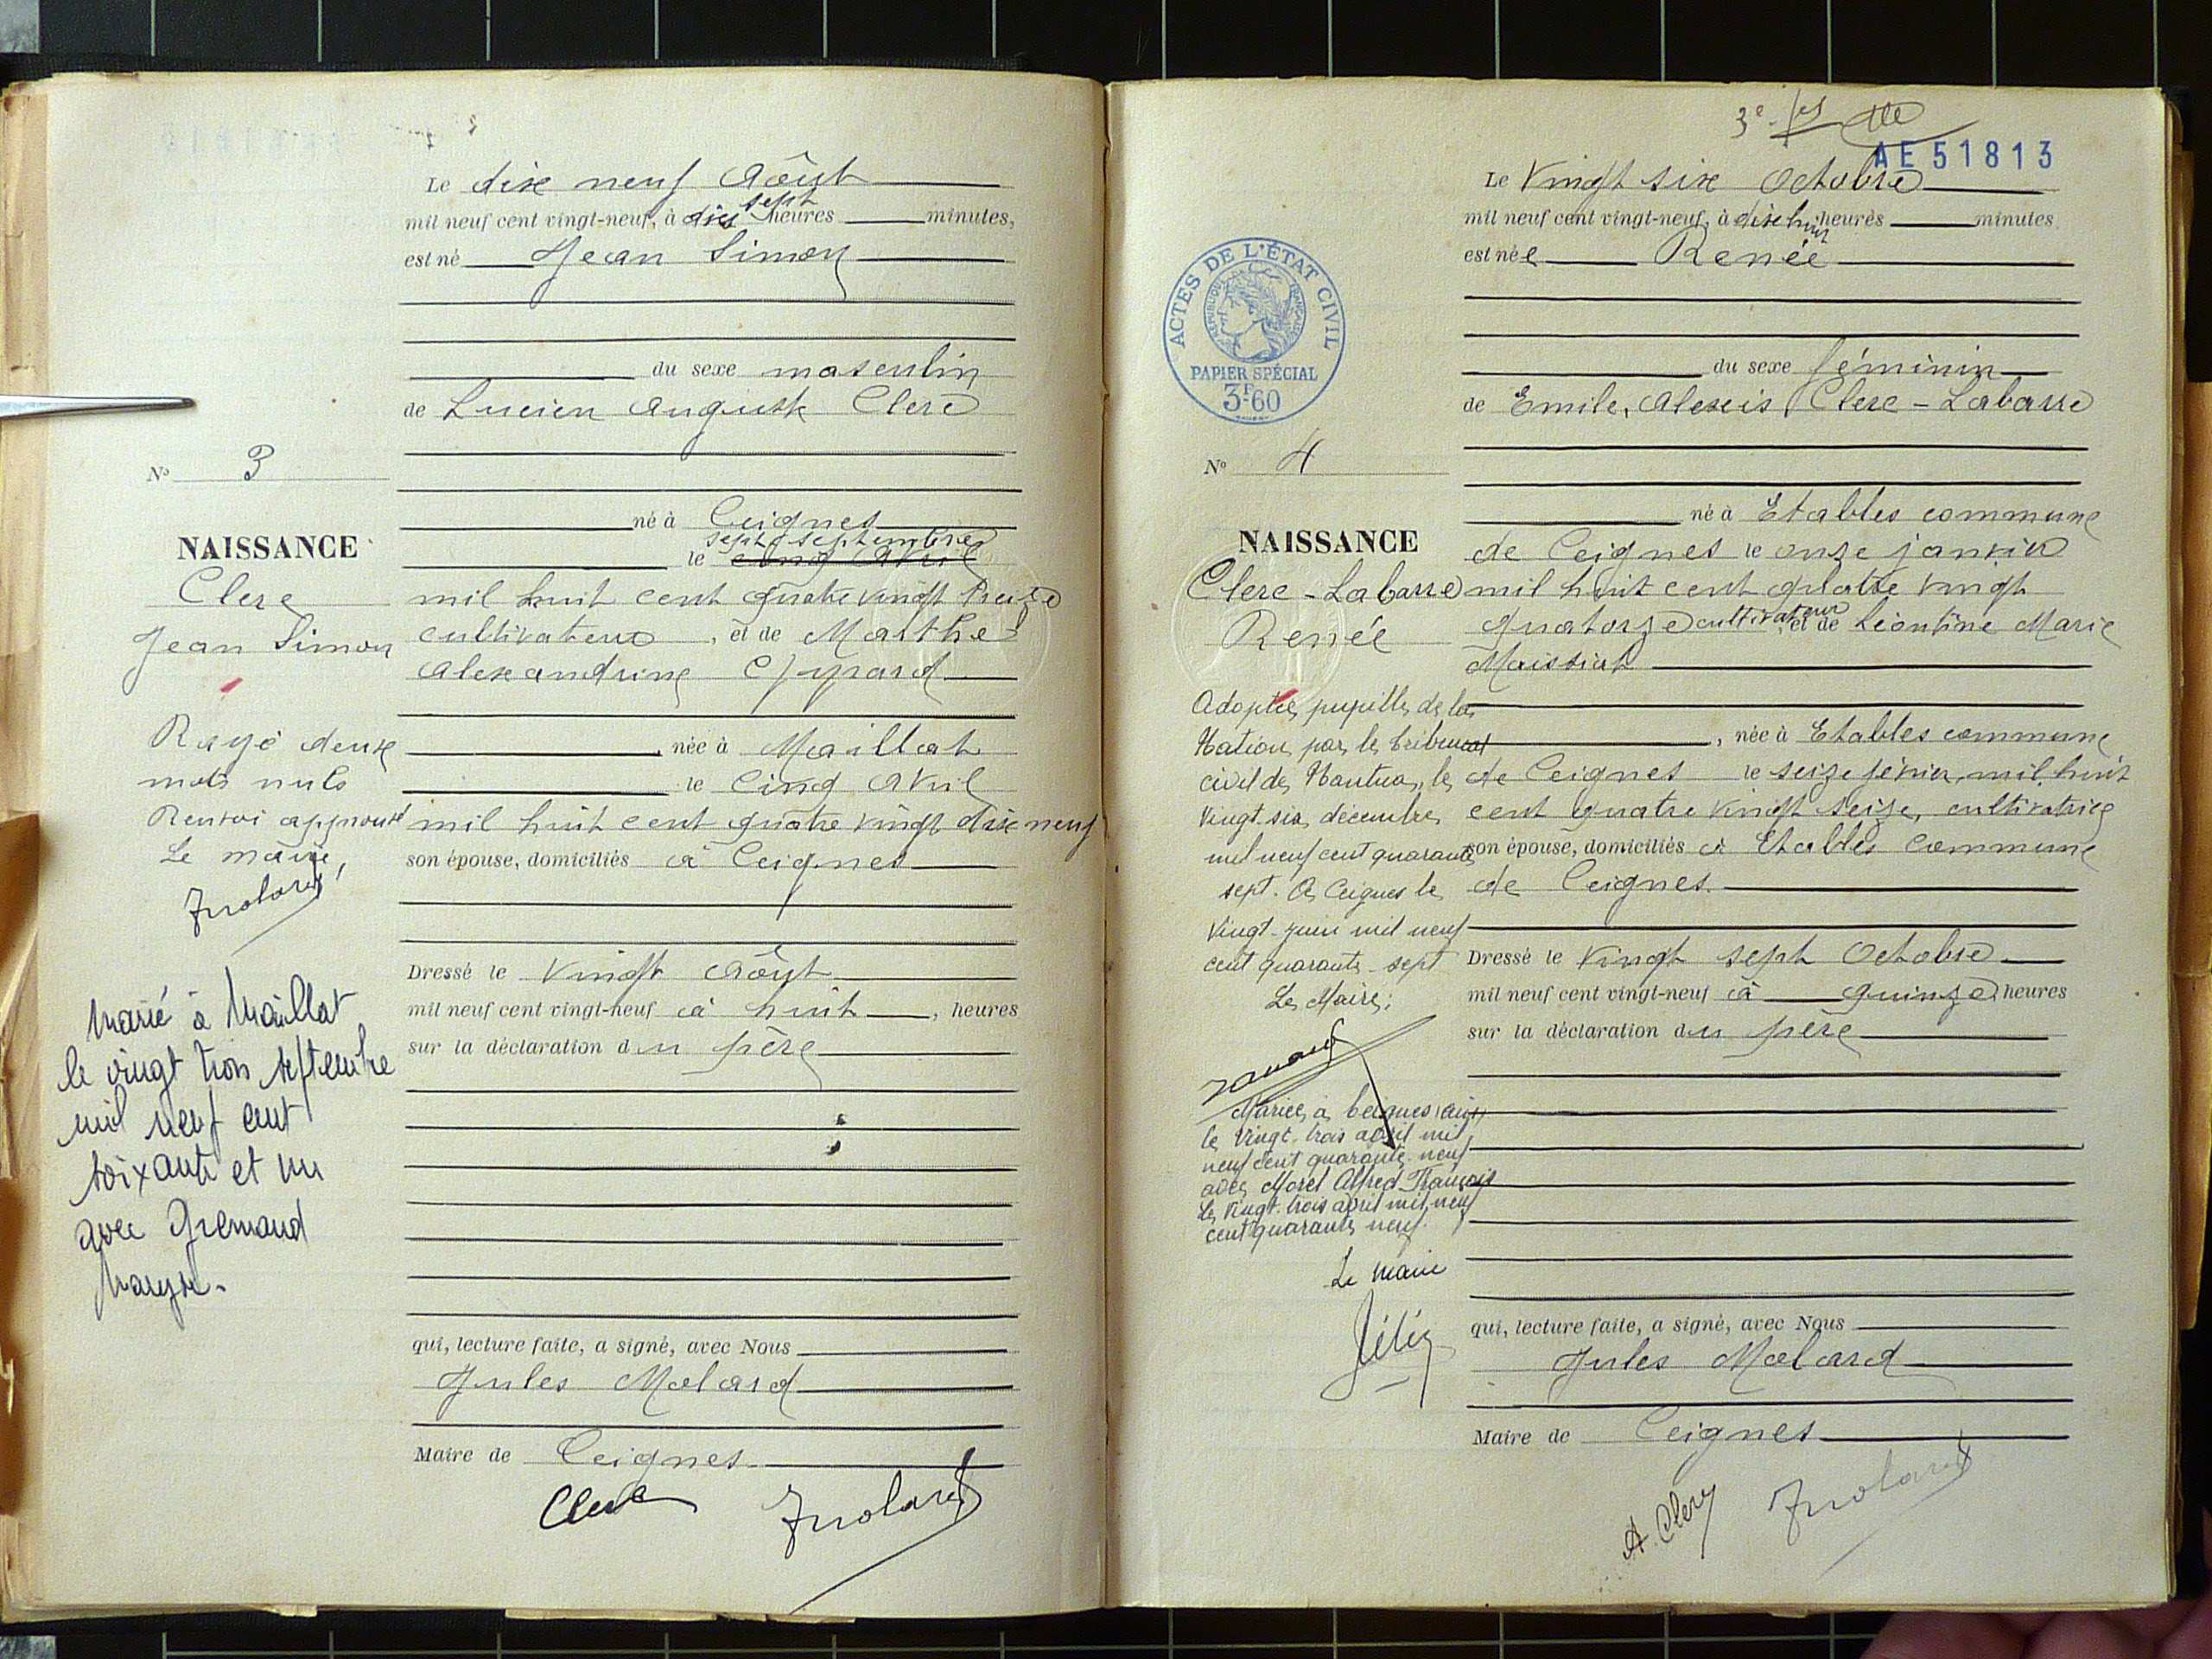 Le dix neuf Aôut
mil neuf cent vingt-neuf, à dix sept heures minutes,
est né Jean Simon
du sexe masculin
de Lucien Auguste Clerc
né à Ceignes
sept septembre
le cinq Avril
mil huit cent quatre vingt treize
cultivateur, et de Marthe
Alexandrine Epyard
née à Maillat
le Cinq Avril
mil huit cent quatre vingt dix neuf
son épouse, domiciliés à Ceignes
Dressé le Vingt Aôut
mil neuf cent vingt-neuf à huit, heures
sur la déclaration du père
qui, lecture faite, a signé, avec Nous
Jules Molard
Maire de Ceignes
Clerc Jmolard
No 3
NAISSANCE
Clerc
Jean Simon
Rayé deux
mots nuls
Renvoi approuvé
Le maire,
Jmolard
Marié à Maillat
le vingt trois septembre
mil neuf cent
soixante et un
avec Gremaud
Maryse.
3e
AE51813
Le Vingt six Octobre
mil neuf cent vingt-neuf, à dix huit heures minutes
est née Renée
du sexe féminin
de Emile, Alexis Clerc-Labarre
né à Etables commune
de Ceignes le onze janvier
mil huit cent quatre vingt
quatorze cultivateur et de Léontine Marie
Maissiat
, née à Etables commune
de Ceignes le seize février mil huit
cent quatre vingt seize, cultivatrice
son épouse, domiciliés à Etables Commune
de Ceignes.
Dressé le Vingt sept Octobre
mil neuf cent vingt-neuf à quinze heures
sur la déclaration du père
qui, lecture faite, a signé, avec Nous
Jules Molard
Maire de Ceignes
A. Clerc Jmolard
ACTES DE L'ÉTAT CIVIL
RÉPUBLIQUE FRANÇAISE
PAPIER SPÉCIAL
3F60
No 4
NAISSANCE
Clerc-Labarre
Renée
Adoptée, pupille de la
Nation par le tribunal
civil de Nantua, le
vingt six décembre
mil neuf cent quarante
sept. A Ceignes le
vingt juin mil neuf
cent quarante-sept
Le Maire;
Mariée à Ceignes (Ain)
le vingt-trois avril mil
neuf cent quarante-neuf
avec Morel Alfred François
Le vingt-trois avril mil neuf
cent quarante neuf.
Le maire